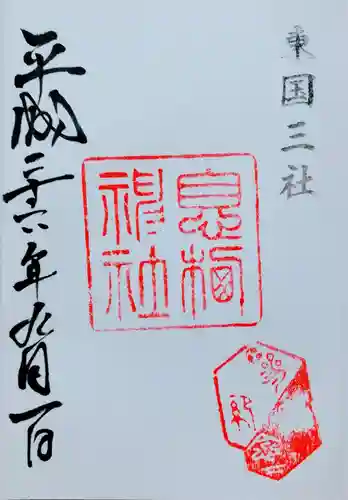 東国三社
息栖
神社
平成二十六年九月一日